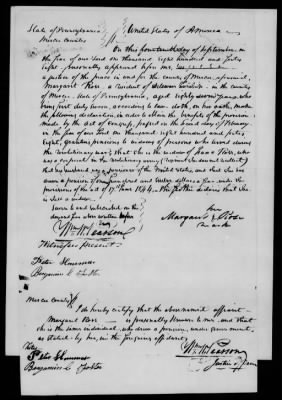 State of Pennsylvania } United States of America
Mercer County } ss
On this fourteenth day of September, in
the year of our Lord one thousand eight hundred and forty
eight personally appeared before me,
a justice of the peace in and for the county of Mercer aforesaid,
Margaret Rose, a resident of Township, in the county
of Mercer, State of Pennsylvania, aged eighty years, who
being first duly sworn, according to law, doth, on her oath, make
the following declaration, in order to obtain the benefits of the provision
made by the Act of Congress, passed on the second day of February
in the year of our Lord one thousand eight hundred and forty
eight, granting pensions to widows of persons who served during
the Revolutionary war; that she is the widow of Isaac Rose, who
was a in the revolutionary army
that my husband was a pensioner of the United States and that she has
drawn a pension of dollars a year under the
provisions of the act of 17th June 1844, she further declares that she
is still a widow.
Sworn to and subscribed on the
day and year above written before
me
Wm W Pearson
Witnesses present
her
Margaret X Rose
mark
Peter Shummer
Benjamin C Foster
Mercer County ss
I do hereby certify that the above named affiant
Margaret Rose is personally known to me and that
she is the same individual, who drew a pension, under government,
as stated by me, in the foregoing affidavit
Wm W Pearson
Justice of Peace
Peter Shummer
Benjamin C Foster